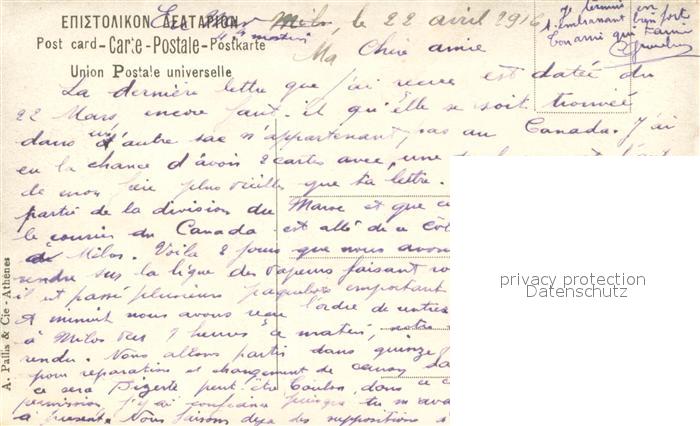 ΕΠΙΣΤΟΛΙΚΟΝ ΔΕΛΤΑΡΙΟΝ
Post card - Carte - Postale - Postkarte
Union Postale universelle
Milos, le 22 avril 1916
Je termine en
t'embrassant bien fort
Ton ami qui t'aime
Ma Chère amie
La dernière lettre que j'ai reçue est datée du
22 Mars, encore faut-il qu'elle se soit trouvée
dans un autre sac n'appartenant pas au Canada. J'ai
eu la chance d'avoir 2 cartes avec, une
de mon frère plus vieille que ta lettre.
partie de la division du Maroc et que ce
le courrier du Canada est allé de ce côt
de Milos. Voilà 2 jours que nous avons
rendre sur la ligne des vapeurs faisant ro
il est passé plusieurs paquebots important
A minuit nous avons reçu l'ordre de
à Milos dès 7 heures ce matin, notre
rendu. Nous allons partir dans quinze
pour réparation et changement de canon
ce sera Bizerte peut être Toulon, dans ce c
permission, j'y ai confiance puisque tu m'ava
à présent. Nous faisons déjà des suppositions s
A. Pallis & Cie - Athènes
privacy protection
Datenschutz